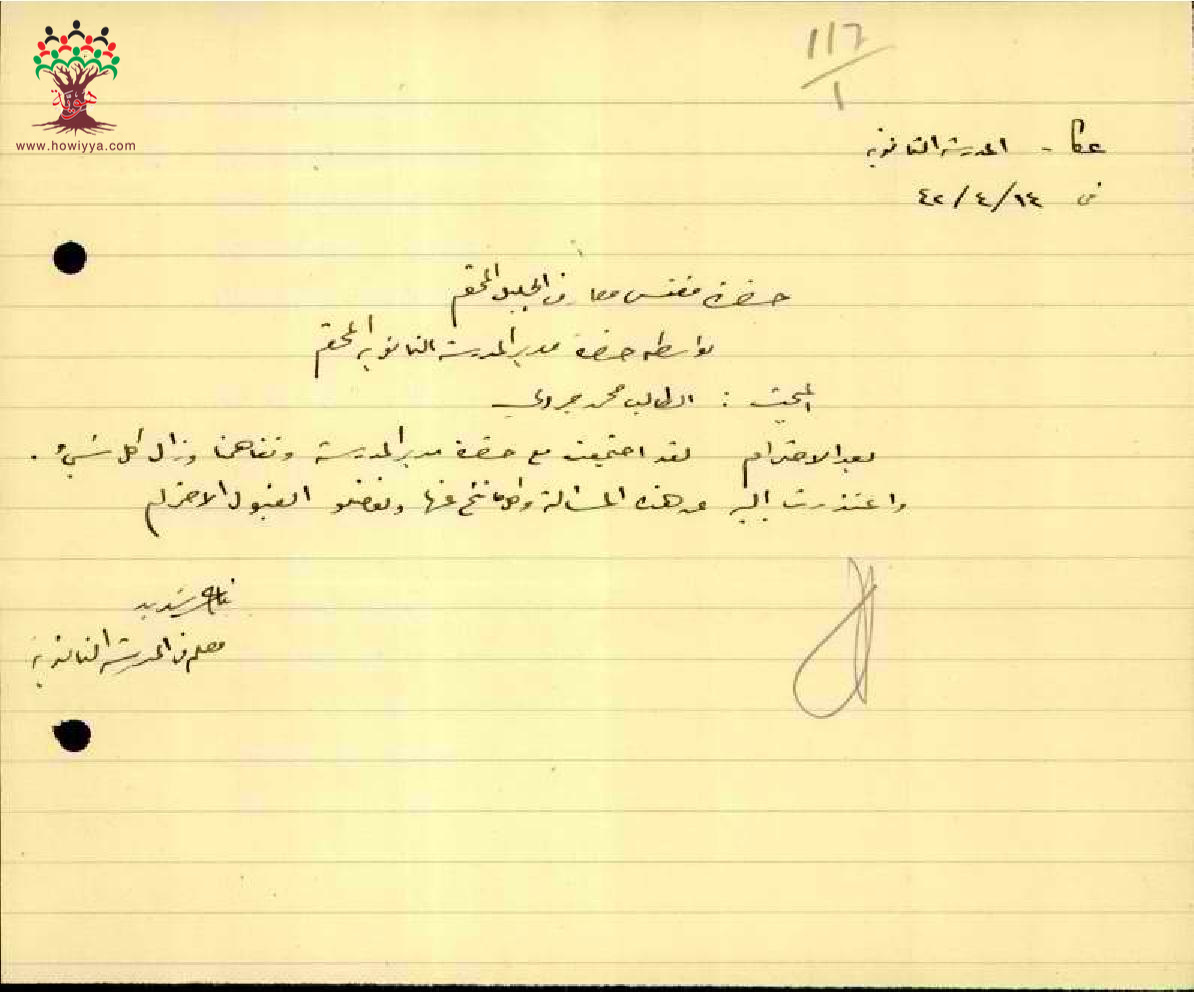 هوية
www.howiyya.com
117
1
عكا - المدرسة الثانوية
في ١٤/٤/٤٢
حضرة مفتش معارف الجليل المحترم
بواسطة حضرة مدير المدرسة الثانوية المحترم
المبحث : الطالب محمد
بعد الاحترام لقد اجتمعت مع حضرة مدير المدرسة وتفاهمنا وزال كل شيء .
واعتذرت إليه عن هذه المسألة وكل ما نتج عنها وتفضلوا بقبول الاحترام
شديد
معلم في المدرسة الثانوية